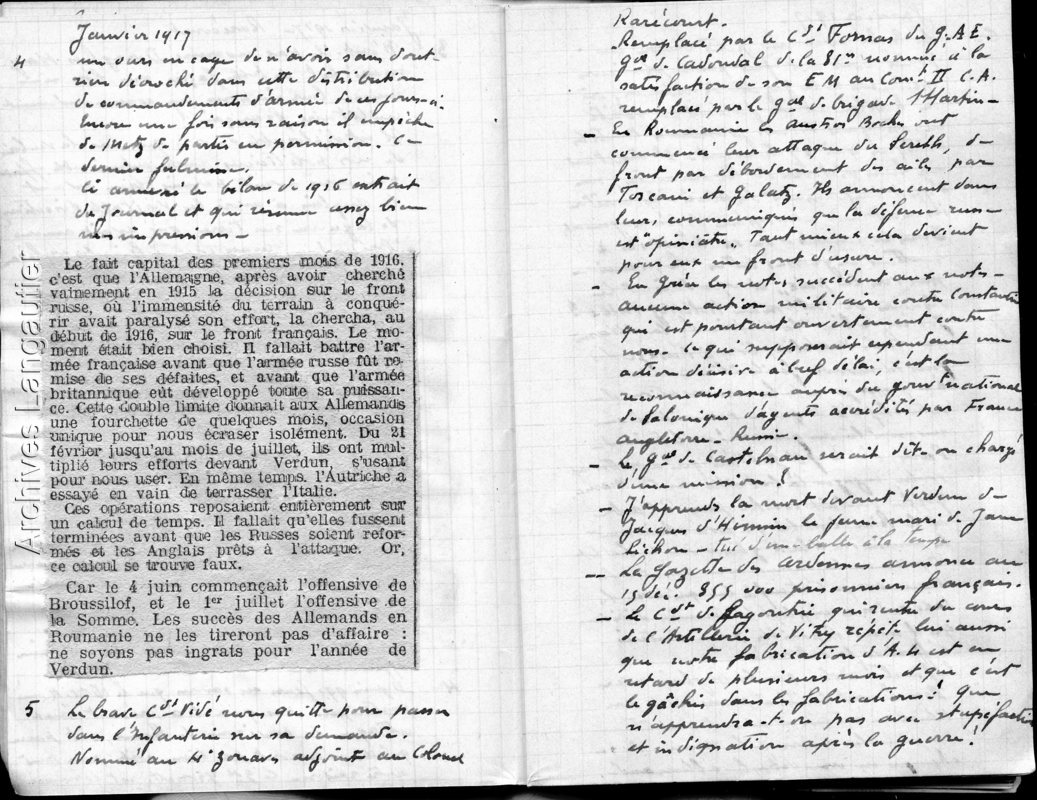 Janvier 1917
4 un ours en cage de n'avoir sans doute
rien décroché dans cette distribution
de commandements d'armée de ces jours-ci.
Encore une fois sans raison il empêche
de Metz de partir en permission. Ce
dernier fulmine.
Ci annexé le bilan de 1916 extrait
du Journal et qui résume assez bien
nos impressions -
Le fait capital des premiers mois de 1916,
c'est que l'Allemagne, après avoir cherché
vainement en 1915 la décision sur le front
russe, où l'immensité du terrain à conqué-
rir avait paralysé son effort, la chercha, au
début de 1916, sur le front français. Le mo-
ment était bien choisi. Il fallait battre l'ar-
mée française avant que l'armée russe fût re-
mise de ses défaites, et avant que l'armée
britannique eût développé toute sa puissan-
ce. Cette double limite donnait aux Allemands
une fourchette de quelques mois, occasion
unique pour nous écraser isolément. Du 21
février jusqu'au mois de juillet, ils ont mul-
tiplié leurs efforts devant Verdun, s'usant
pour nous user. En même temps, l'Autriche a
essayé en vain de terrasser l'Italie.
Ces opérations reposaient entièrement sur
un calcul de temps. Il fallait qu'elles fussent
terminées avant que les Russes soient refor-
més et les Anglais prêts à l'attaque. Or,
ce calcul se trouve faux.
Car le 4 juin commençait l'offensive de
Broussilof, et le 1er juillet l'offensive de
la Somme. Les succès des Allemands en
Roumanie ne les tireront pas d'affaire :
ne soyons pas ingrats pour l'année de
Verdun.
5 Le brave Cdt Vidé nous quitte pour passer
dans l'Infanterie sur sa demande.
Nommé au 4e Zouaves adjoint au Colonel
Archives Langautier
Rarécourt.
Remplacé par le Cdt Fornas du G.A.E.
Gal de Cadoudal de la 31me nommé à la
satisfaction de son EM au Comt II C.A.
remplacé par le gal de brigade Martin -
- En Roumanie les Austros Boches ont
commencé leur attaque du Sereth, de
front par débordement des ailes par
Foscani et Galatz. Ils annoncent dans
leurs communiqués que la défense russe
est "opiniâtre". Tant mieux cela devient
pour eux un front d'usure.
- En Grèce les notes succèdent aux notes -
aucune action militaire contre Constantin
qui est pourtant ouvertement contre
nous. Ce qui supposerait cependant une
action décisive à bref délai, c'est la
reconnaissance auprès du gouvt national
de Salonique d'agents accrédités par France
Angleterre - Russie.
- Le gal de Castelnau serait dit-on chargé
d'une mission ?
- J'apprends la mort devant Verdun de
Jacques d' le jeune mari de Jane
- tué d'une balle à la tempe
- La gazette des Ardennes annonce au
15 déc. 355 000 prisonniers français.
- Le Cdt de qui rentre du cours
de l'Artillerie de Vitry répète lui aussi
que notre fabrication d'A.H est en
retard de plusieurs mois et que c'est
le gâchis dans les fabrications ! Que
n'apprendra-t-on pas avec stupéfaction
et indignation après la guerre !